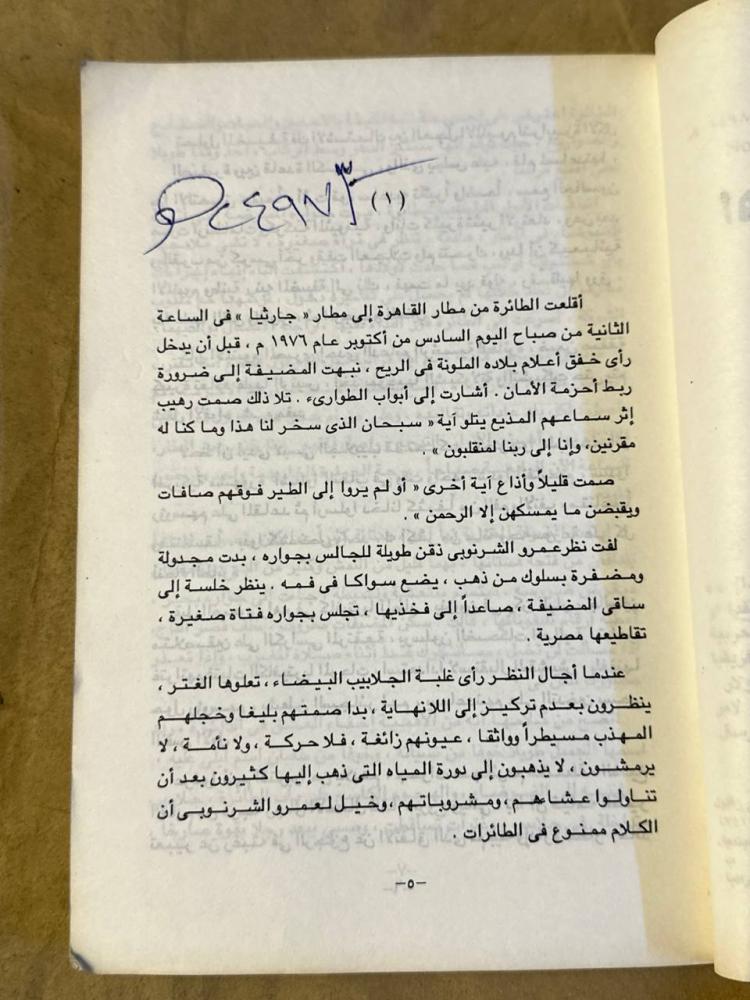 (١)
أقلعت الطائرة من مطار القاهرة إلى مطار « جارثيا » فى الساعة
الثانية من صباح اليوم السادس من أكتوبر عام ١٩٧٦ م ، قبل أن يدخل
رأى خفق أعلام بلاده الملونة فى الريح ، نبهت المضيفة إلى ضرورة
ربط أحزمة الأمان . أشارت إلى أبواب الطوارىء . تلا ذلك صمت رهيب
إثر سماعهم المذيع يتلو آية « سبحان الذى سخر لنا هذا وما كنا له
مقرنين، وإنا إلى ربنا لمنقلبون » .
صمت قليلاً وأذاع آية أخرى « أو لم يروا إلى الطير فوقهم صافات
ويقبضن ما يمسكهن إلا الرحمن » .
لفت نظر عمرو الشرنوبى ذقن طويلة للجالس بجواره ، بدت مجدولة
ومضفرة بسلوك من ذهب ، يضع سواكا فى فمه . ينظر خلسة إلى
ساقى المضيفة ، صاعداً إلى فخذيها ، تجلس بجواره فتاة صغيرة ،
تقاطيعها مصرية .
عندما أجال النظر رأى غلبة الجلابيب البيضاء ، تعلوها الغتر ،
ينظرون بعدم تركيز إلى اللانهاية ، بدا صمتهم بليغا وخجلهم
المهذب مسيطراً وواثقا ، عيونهم زائغة ، فلا حركة ، ولا نأمة ، لا
يرمشون ، لا يذهبون إلى دورة المياه التى ذهب إليها كثيرون بعد أن
تناولوا عشاءهم ، ومشروباتهم ، وخيل لعمرو الشرنوبى أن
الكلام ممنوع فى الطائرات .
–٥–